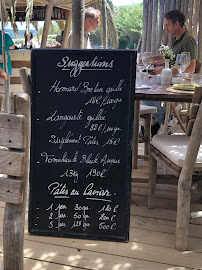 Suggestions
Homard Breton grillé
16€/100gr
Langouste grillée
28€/100gr
Supplément Pâtes 15€
Tomahawk Black Angus
1,3kg 130€
Pâtes au Caviar
1 per 30gr 120€
2 per 50gr 200€